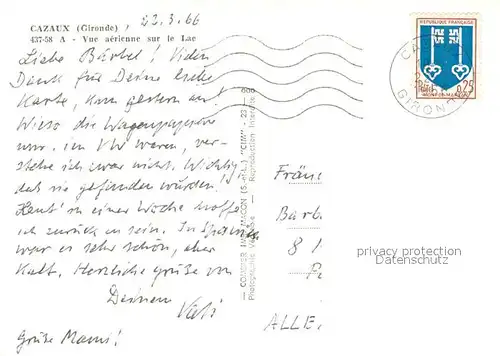 CAZAUX (Gironde) , 22.3.66
437-58 A - Vue aérienne sur le Lac
Liebe Bärbel! Vielen
Dank für Deine liebe
Karte, kam gestern an!
Wieso die Wagenpapiere
nur im VW waren, ver-
stehe ich zwar nicht. Wichtig
daß sie gefunden wurden!
Heut' in einer Woche hoffe
ich zurück zu sein. In Spanien
war es sehr schön, aber
kalt. Herzliche Grüße von
Deinem
Vati
Grüße Mami!
COMBIER IMP. MACON (S.-&-L.) "CIM"
Reproduction interdite
REPUBLIQUE FRANÇAISE
0,25
MONT-DE-MARSAN
CA
GIRON
Frän
Barb
8
ALLE
privacy protection
privacy protection VERMERK